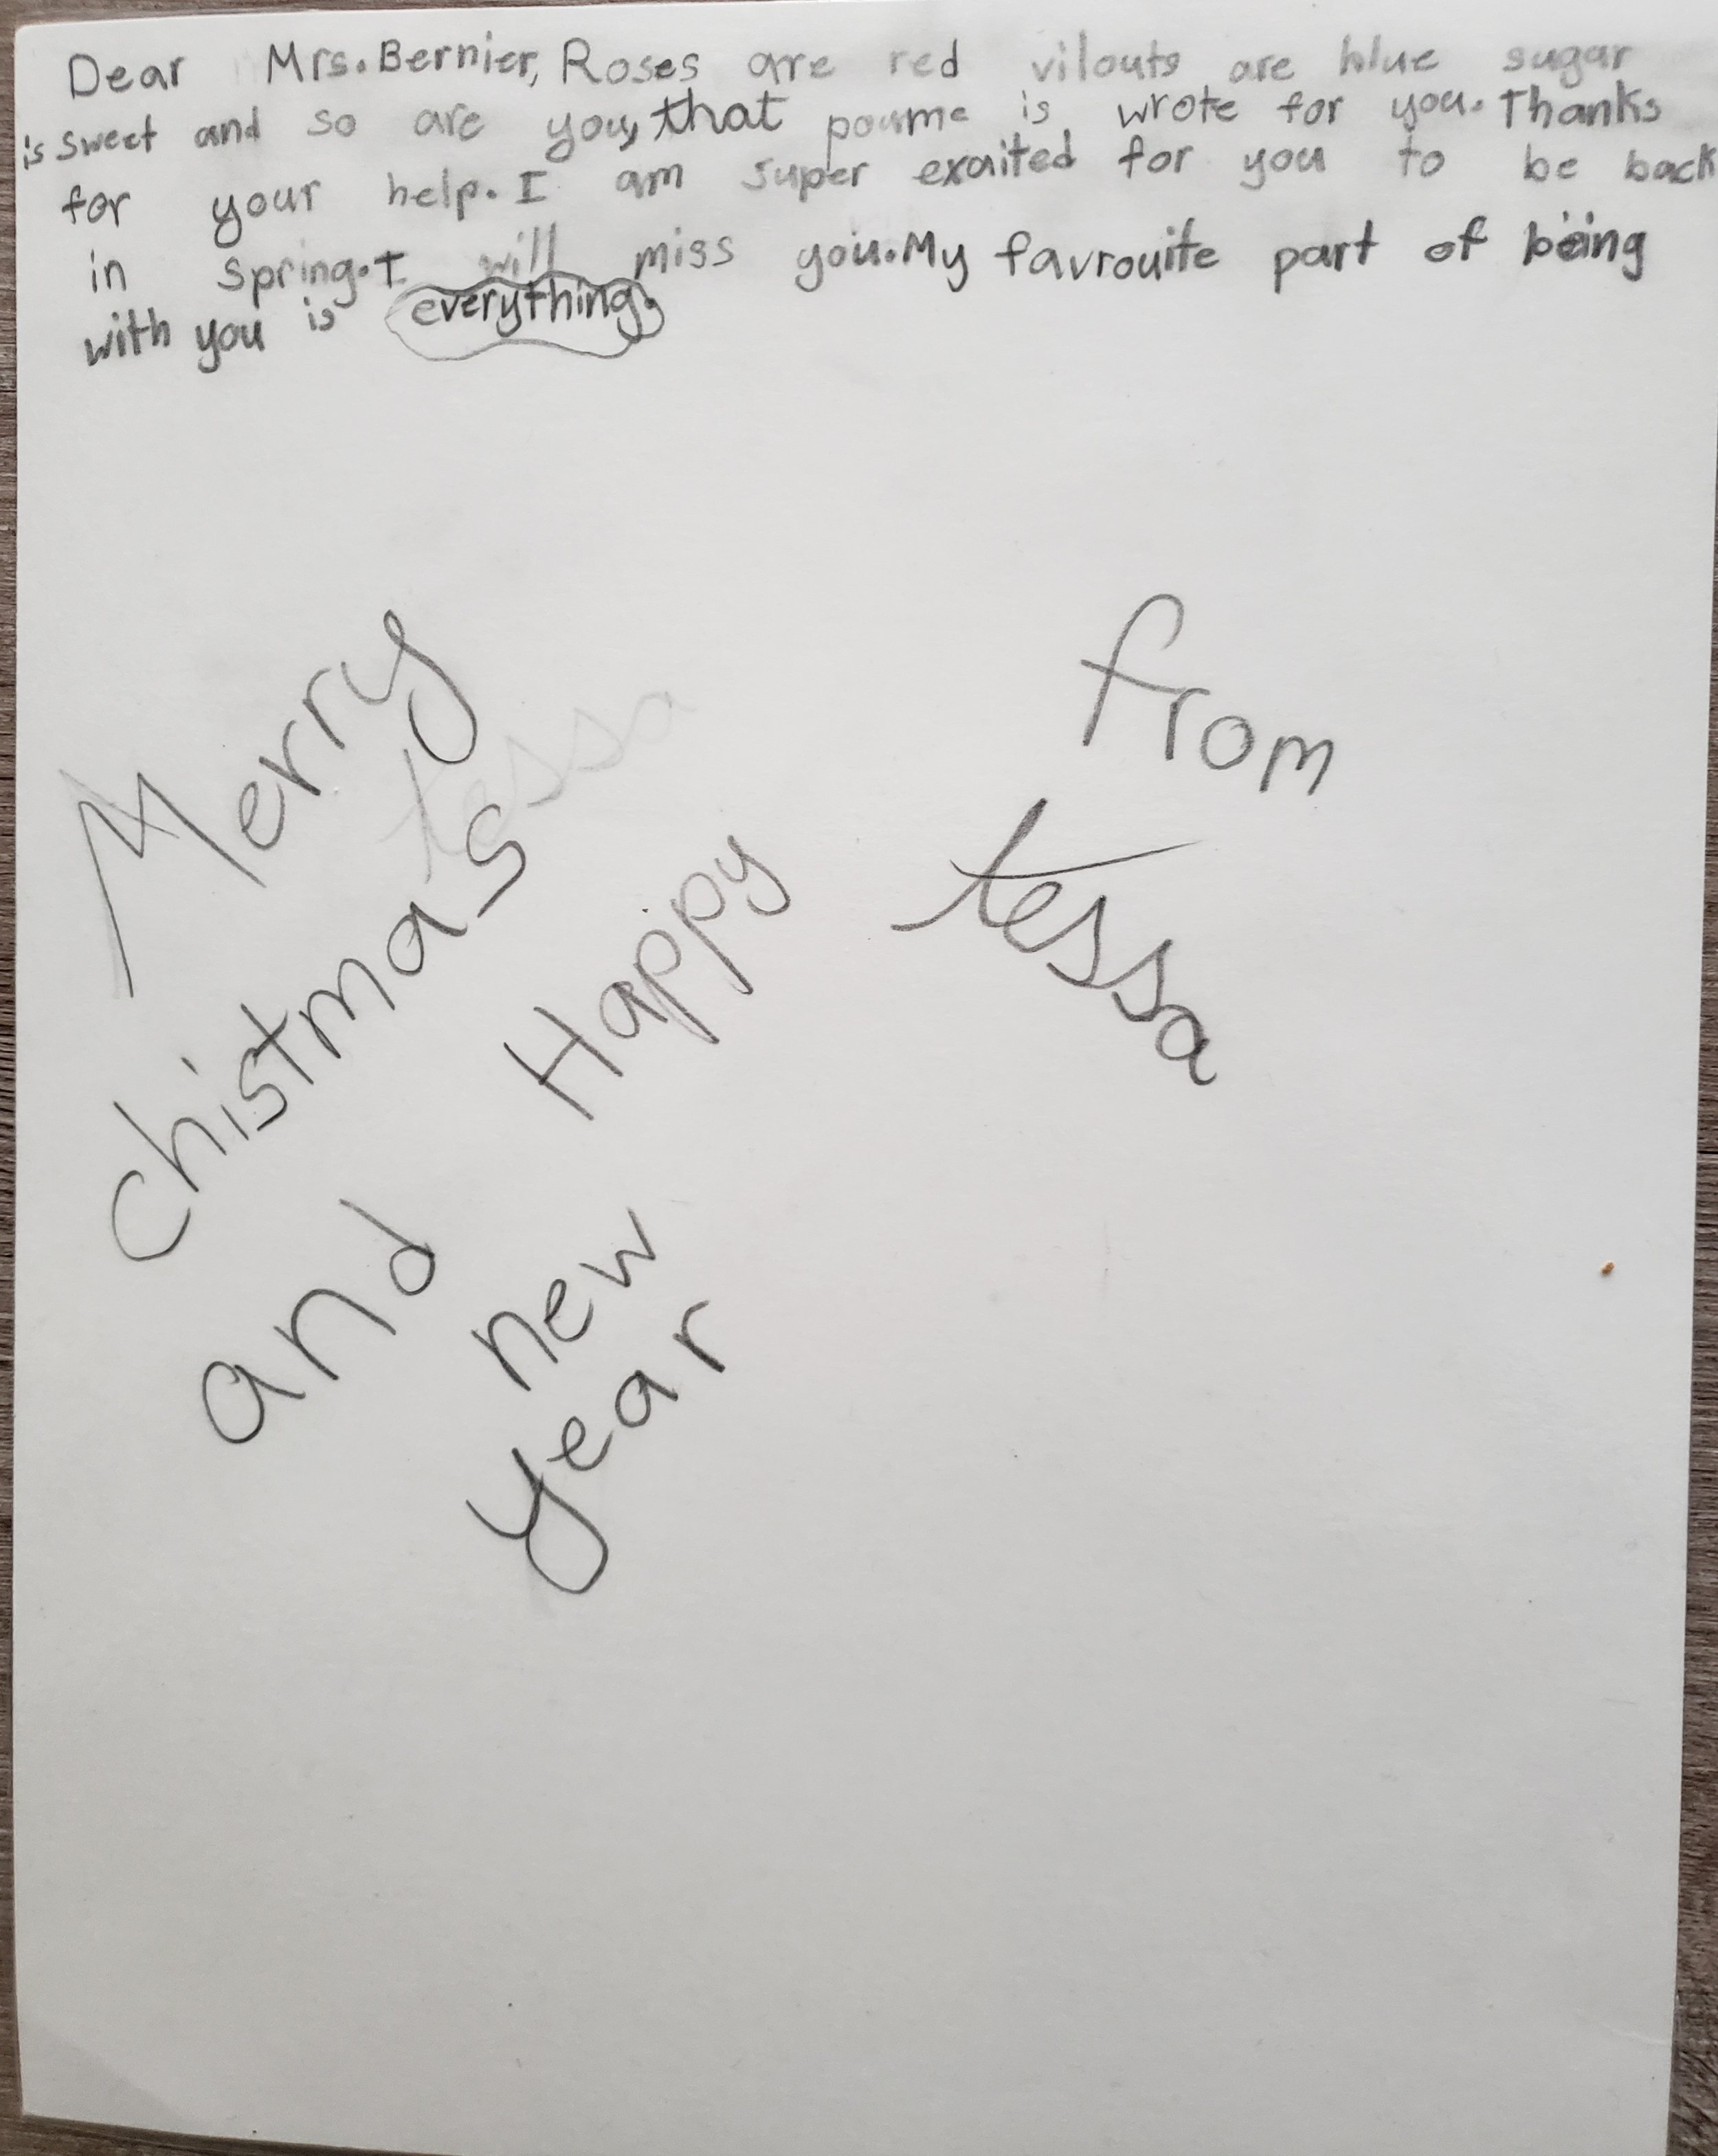 Dear Mrs. Bernier, Roses are red vilouts are blue sugar
is sweet and so are you, that poume is wrote for you. Thanks
for your help. I am super exaited for you to be back
in spring. I will miss you. My favrouite part of being
with you is everything.
Merry
tessa
chistmas
and Happy
new
year
from
tessa